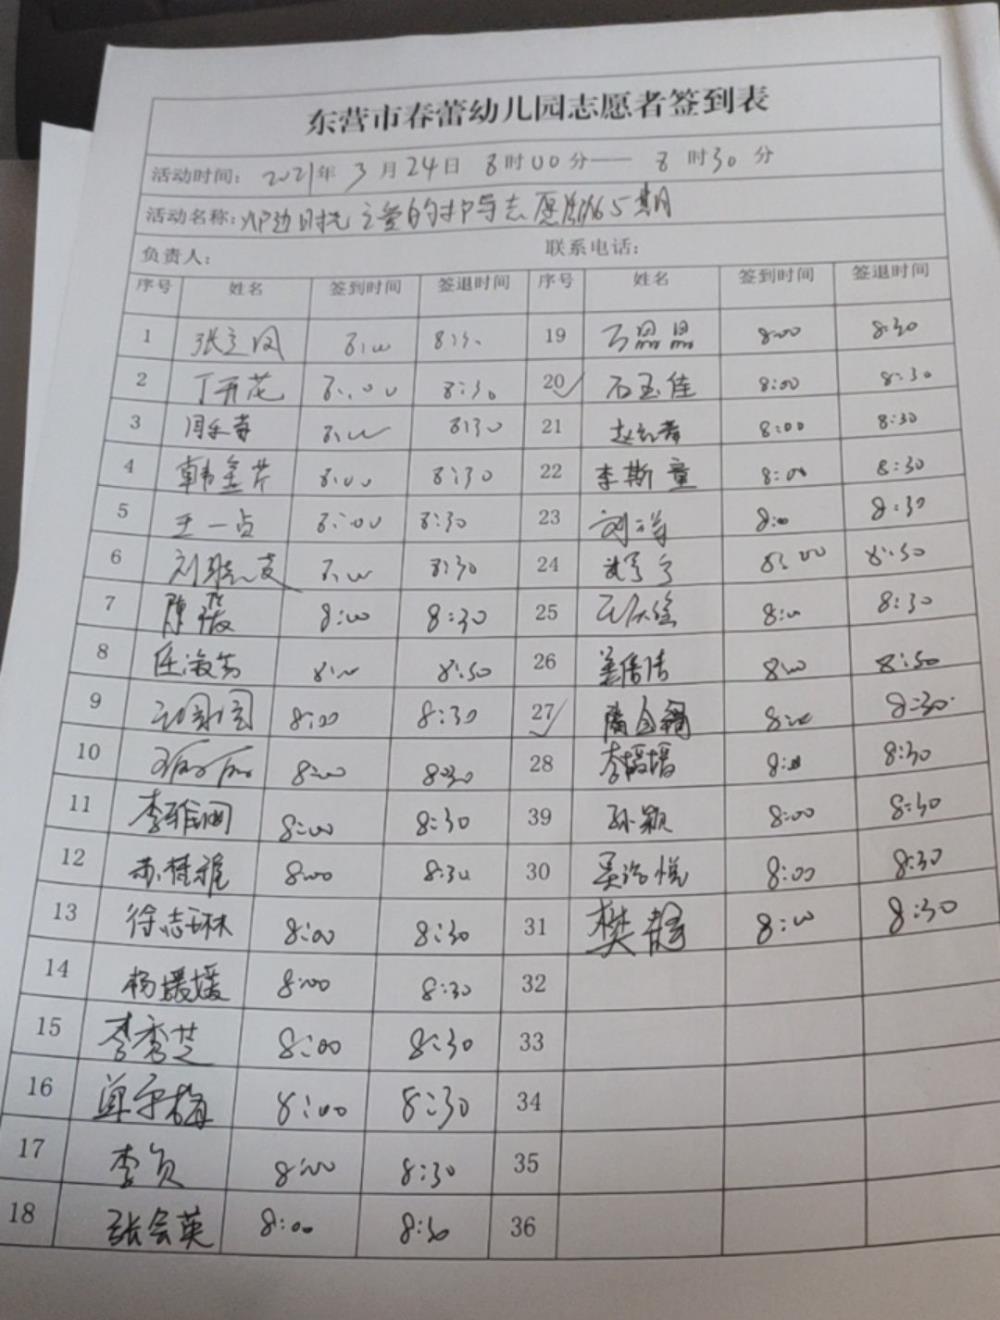 东营市春蕾幼儿园志愿者签到表
活动时间: 2021年 3月24日 8时00分—— 8时30分
活动名称: 之爱的护导志愿 65期
负责人: 联系电话:
序号 姓名 签到时间 签退时间 序号 姓名 签到时间 签退时间
1 张立凤 8:00 8:30 19 石思思 8:00 8:30
2 丁开花 8:00 8:30 20 石玉佳 8:00 8:30
3 8:00 8:30 21 8:00 8:30
4 韩金芹 8:00 8:30 22 李斯童 8:00 8:30
5 王一点 8:00 8:30 23 刘洋 8:00 8:30
6 8:00 8:30 24 8:00 8:30
7 陈 8:00 8:30 25 8:00 8:30
8 任海 8:00 8:30 26 姜倩倩 8:00 8:30
9 8:00 8:30 27 8:00 8:30
10 8:00 8:30 28 李媛媛 8:00 8:30
11 李雅 8:00 8:30 39 孙颖 8:00 8:30
12 8:00 8:30 30 吴 悦 8:00 8:30
13 徐志琳 8:00 8:30 31 樊静 8:00 8:30
14 杨媛媛 8:00 8:30 32
15 李秀芝 8:00 8:30 33
16 单 梅 8:00 8:30 34
17 李贞 8:00 8:30 35
18 张会英 8:00 8:30 36